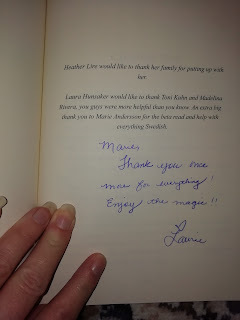 Heather Lire would like to thank her family for putting up with
her
Laura Hunsaker would like to thank Toni Kohn and Madelina
Rivera, you guys were more helpful than you know. An extra big
thank you to Marie Andersson for the beta read and help with
everything Swedish.
Marie,
Thank you once
more for everything!
Enjoy the magic!!